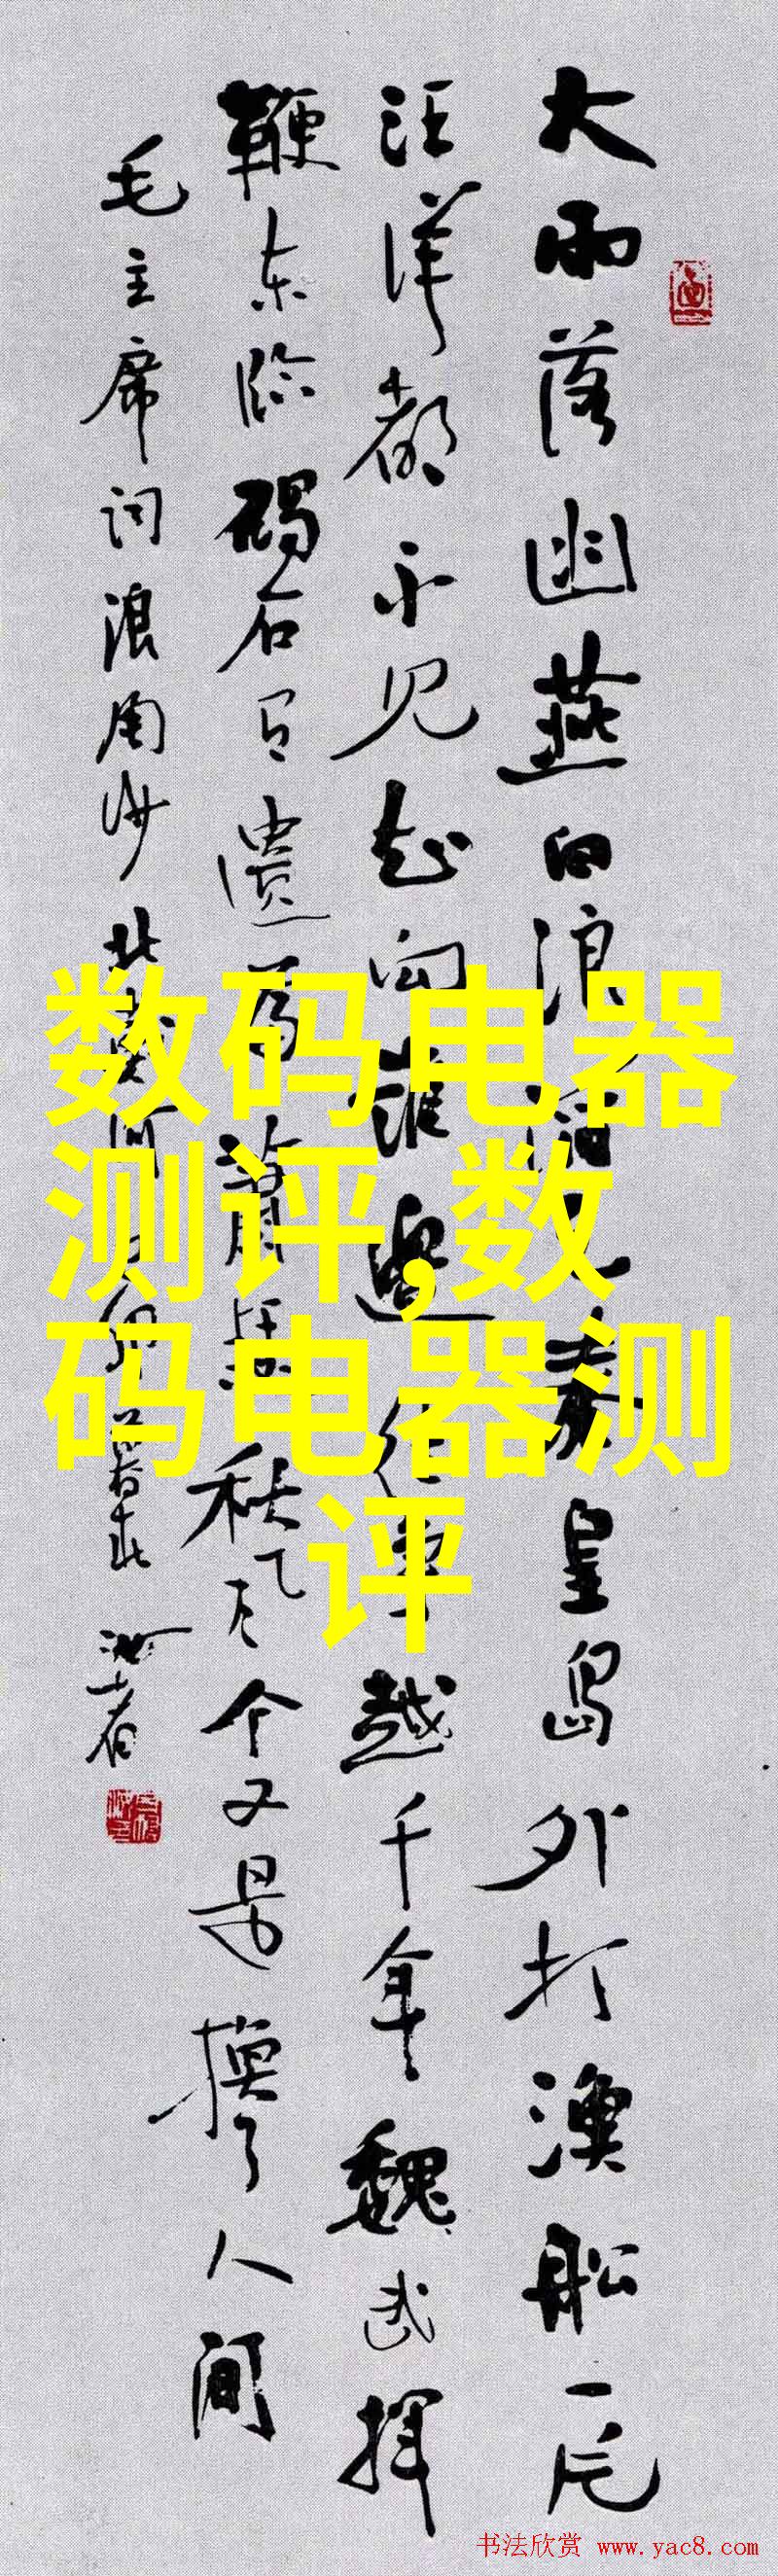 大雨落幽燕白浪滔天秦皇岛外打漁船一片
汪洋都不见知向誰邊往事越千年魏武揮
鞭东临碣石有遺篇蕭瑟秋风今又是換了人间
毛主席词浪淘沙北戴河
数码电器
测评,数
码电器测
评
书法欣赏 www.yac8.com